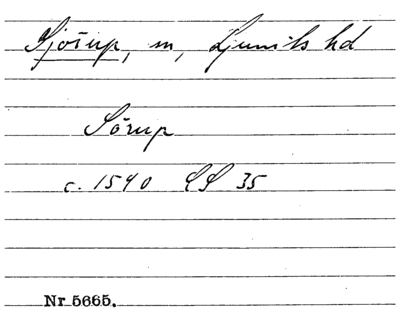 Sjörup, m, Ljunits hd
Sörup
c. 1540 LS 35
Nr 5665.